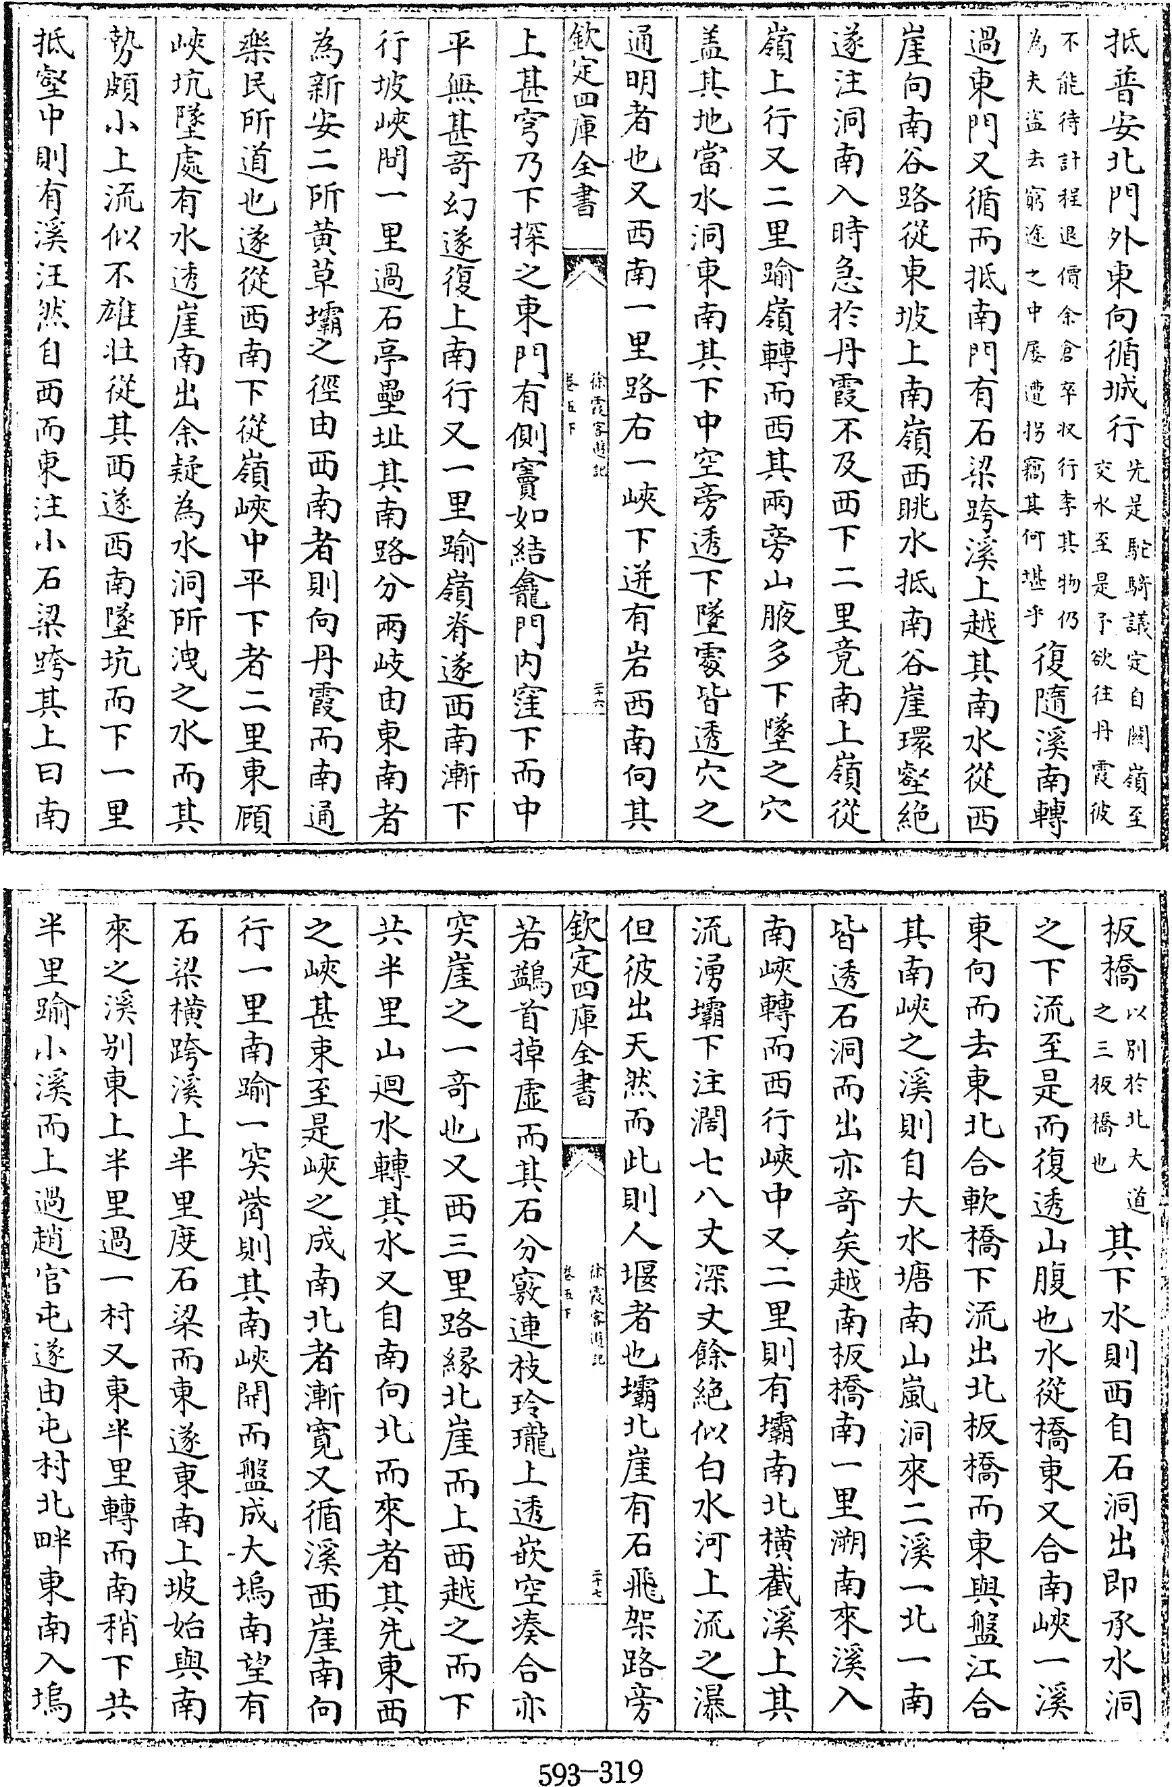 抵普安北門外東向循城行先是駝騎議定自關嶺至交水至是予欲往丹霞彼
不能待計程退價余倉卒收行李其物仍為夫盜去窮途之中屢遭拐竊其何堪乎復隨溪南轉
過東門又循而抵南門有石梁跨溪上越其南水從西
崖向南谷路從東坡上南嶺西眺水抵南谷崖環壑絕
遂注洞南入時急於丹霞不及西下二里竟南上嶺從
嶺上行又二里踰嶺轉而西其兩旁山腋多下墜之穴
盖其地當水洞東南其下中空旁透下墜處皆透穴之
通明者也又西南一里路右一峽下迸有岩西南向其
欽定四庫全書
徐霞客遊記
卷五下
二十六
上甚穹乃下探之東門有側竇如結龕門內窪下而中
平無甚奇幻遂復上南行又一里踰嶺脊遂西南漸下
行坡峽間一里過石亭壘址其南路分兩岐由東南者
為新安二所黃草壩之徑由西南者則向丹霞而南通
樂民所道也遂從西南下從嶺峽中平下者二里東顧
峽坑墜處有水透崖南出余疑為水洞所洩之水而其
勢頗小上流似不雄壯從其西遂西南墜坑而下一里
抵壑中則有溪汪然自西而東注小石梁跨其上曰南
板橋以別於北大道之三板橋也其下水則西自石洞出即承水洞
之下流至是而復透山腹也水從橋東又合南峽一溪
東向而去東北合軟橋下流出北板橋而東與盤江合
其南峽之溪則自大水塘南山嵐洞來二溪一北一南
皆透石洞而出亦奇矣越南板橋南一里溯南來溪入
南峽轉而西行峽中又二里則有壩南北橫截溪上其
流湧壩下注濶七八丈深丈餘絕似白水河上流之瀑
但彼出天然而此則人堰者也壩北崖有石飛架路旁
欽定四庫全書
徐霞客遊記
卷五下
二十七
若鷁首掉虛而其石分竅連枝玲瓏上透嵌空湊合亦
突崖之一奇也又西三里路緣北崖而上西越之而下
共半里山迴水轉其水又自南向北而來者其先東西
之峽甚束至是峽之成南北者漸寬又循溪西崖南向
行一里南踰一突嘴則其南峽開而盤成大塢南望有
石梁橫跨溪上半里度石梁而東遂東南上坡始與南
來之溪別東上半里過一村又東半里轉而南稍下共
半里踰小溪而上過趙官屯遂由屯村北畔東南入塢
593-319